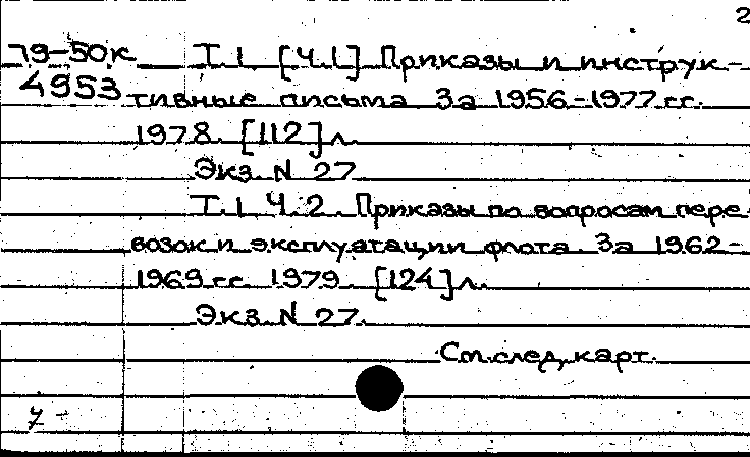 2
79-50к Т.1 [Ч.1] Приказы и инструк-
4953 тивные письма за 1956-1977 гг.
1978. [112] л.
Экз. N 27
Т.1 Ч.2. Приказы по вопросам пере
возок и эксплуатации флота. За 1962-
1969 гг. 1979. [124] л.
Экз. N 27.
См. след. карт.